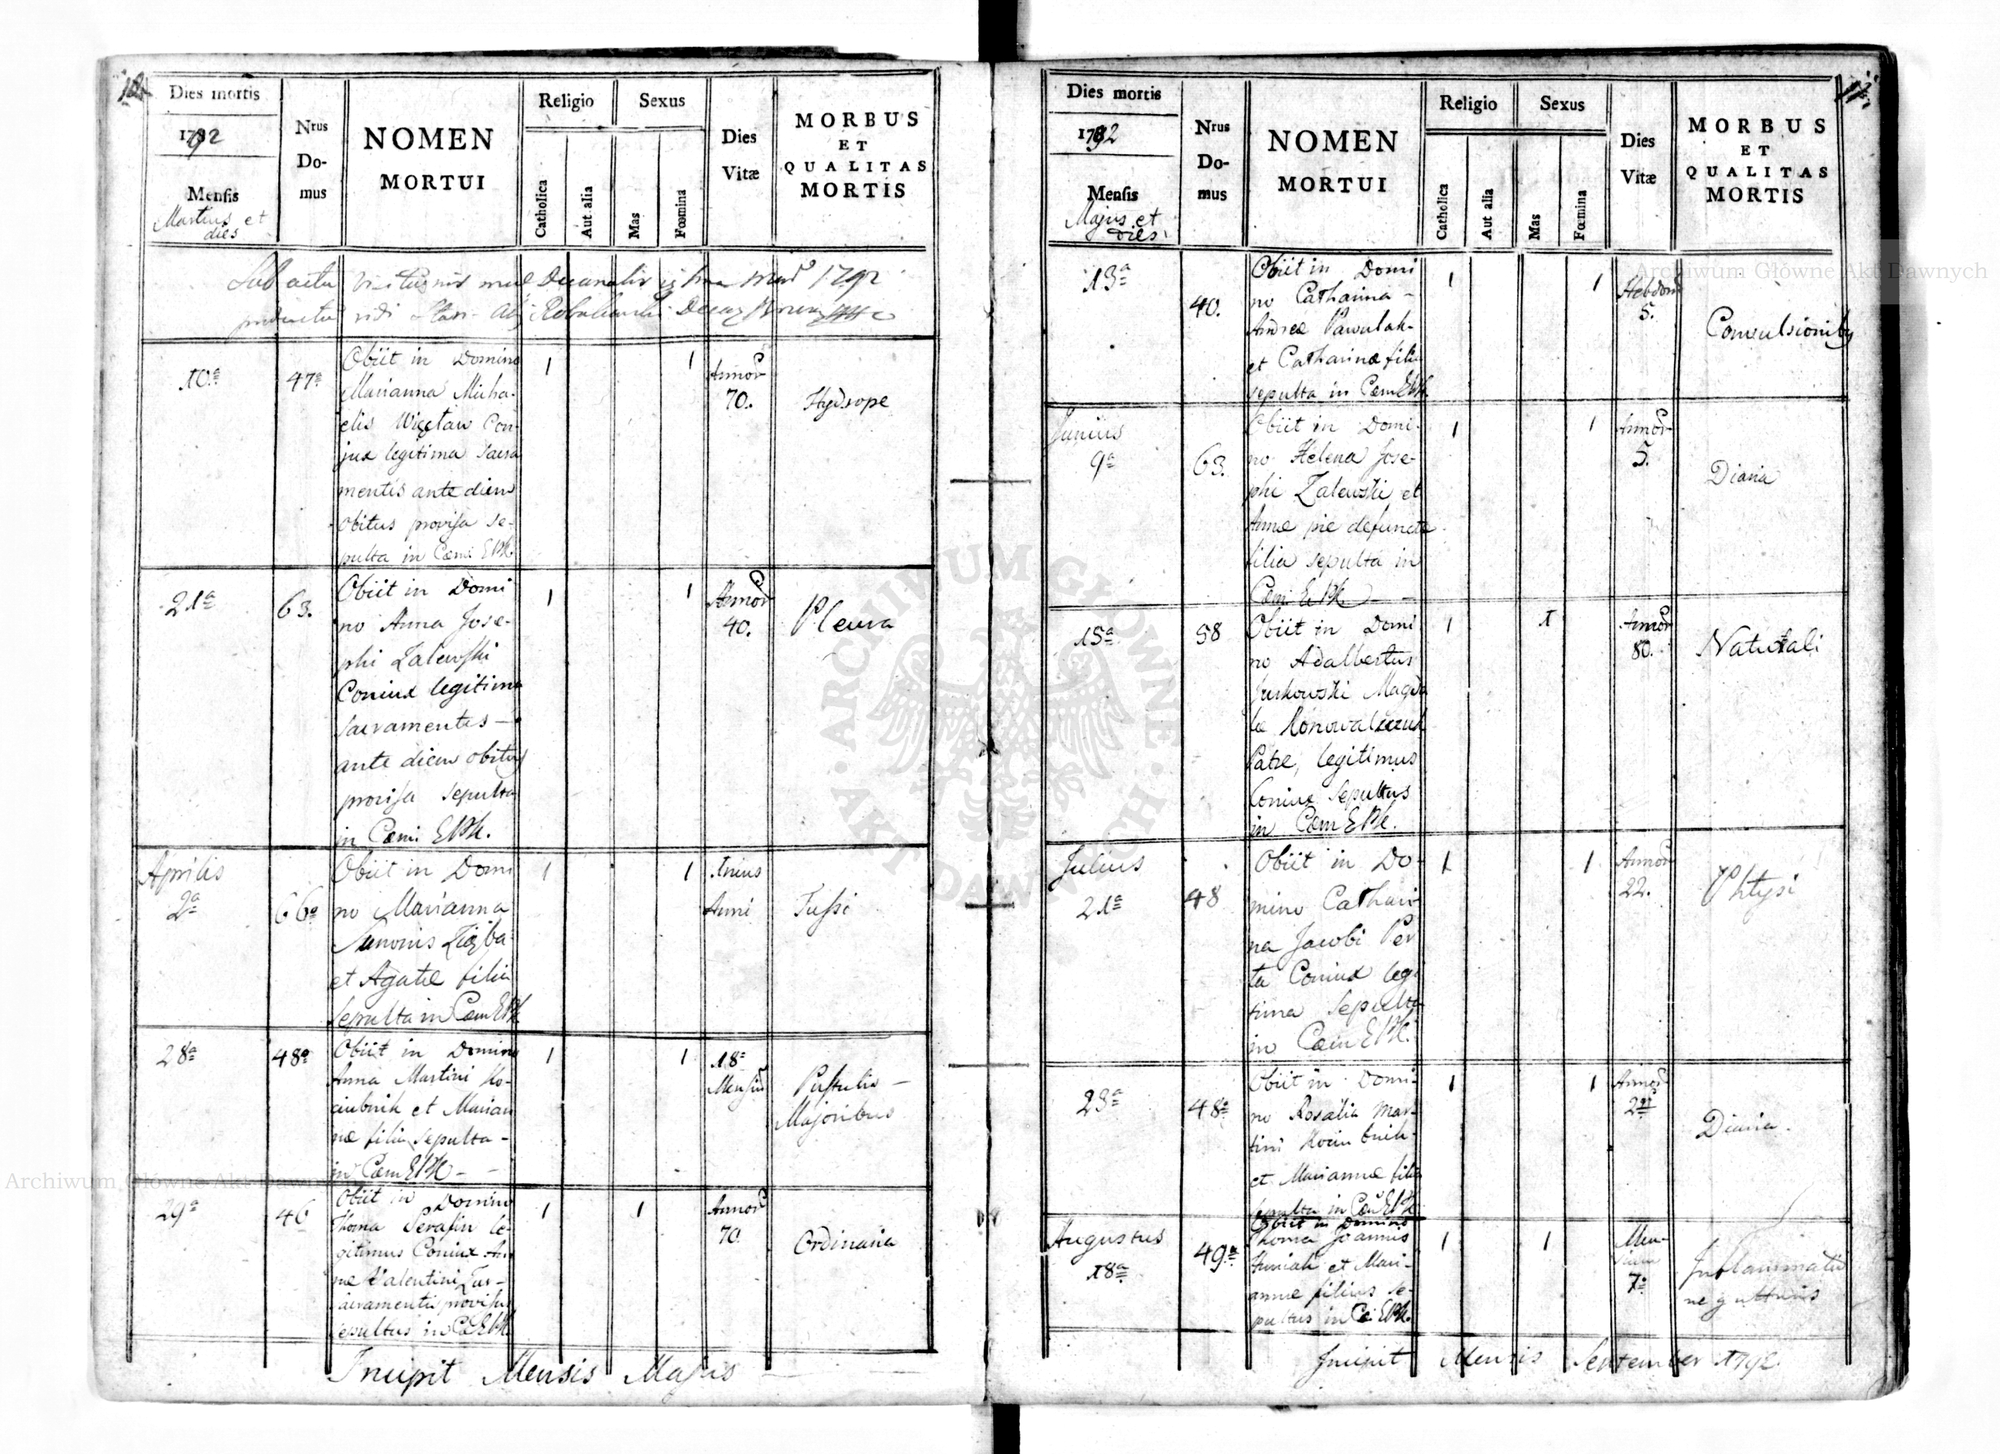 Dies mortis
1792
Mensis
Martius et
dies
Nrus
Do-
mus
NOMEN
MORTUI
Religio
Catholica
Aut alia
Sexus
Mas
Fœmina
Dies
Vitæ
MORBUS
ET
QUALITAS
MORTIS
Sub actu
1792
10a
47a
Obiit in Domino
Marianna Micha-
elis Więcław Con-
jux legitima Sacra
mentis ante diem
obitus provisa se-
pulta in Cœm EPK.
1
1
Annor
70.
Hydrope
21a
63.
Obiit in Domi
no Anna Jose-
phi Zalewski
Coniux legitima
sacramentis
ante diem obitus
provisa sepulta
in Cœmi EPK.
1
1
Annor
40.
Pleura
Aprilis
2a
66a
Obiit in Domi
no Marianna
Simonis Zięba
et Agatæ filia
sepulta in Cœm EPK
1
1
Unius
Anni
Tussi
28a
48a
Obiit in Domino
Anna Martini Ko-
ciubnik et Marian
næ filia sepulta -
in Cœm EPK
1
1
18
Mensium
Pustulis
Majoribus
29a
46
Obiit in Domino
Thoma Serafin le-
gitimus Coniux An
næ Valentini
sacramentis provisus
sepultus in Cœ EPK.
1
1
Annor
70
Ordinaria
Incipit Mensis Majus
Dies mortis
1792
Mensis
Majus et
dies
Nrus
Do-
mus
NOMEN
MORTUI
Religio
Catholica
Aut alia
Sexus
Mas
Fœmina
Dies
Vitæ
MORBUS
ET
QUALITAS
MORTIS
13a
40.
Obiit in Domi
no Catharina
Andreæ Pawulak
et Catharinæ filia
sepulta in Cœm EPK
1
1
Hebdom
5.
Convulsionibus
Junius
9a
63.
Obiit in Domi-
no Helena Jose-
phi Zalewski et
Annæ pie defunctæ
filia sepulta in
Cœmi EPK
1
1
Annor
5.
Diaria
15a
58
Obiit in Domi
no Adalbertus
Jurkowski Magda
læ Konowalczuk
Patre, legitimus
Coniux sepultus
in Cœm EPK.
1
1
Annor
80.
Naturali
Julius
21a
48
Obiit in Do-
mino Cathari
na Jacobi Per
ta Coniux legi
tima sepulta
in Cœm EPK.
1
1
Annor
22.
Phtysi
23a
48a
Obiit in Domi-
no Rosalia Mar-
tini Kociubnik
et Mariannæ filia
sepulta in Cœm EPK
1
1
Annor
Diaria.
Augustus
18a
49a
Obiit in Domino
Thoma Joannis
et Mari-
annæ filius se-
pultus in Cœ EPK.
1
1
Men-
sium
7
Inflammatio
ne gutturis
Incipit Mensis September 1792.
ARCHIWUM GŁÓWNE AKT DAWNYCH
Archiwum Główne Akt Dawnych
Archiwum Główne Akt Dawnych